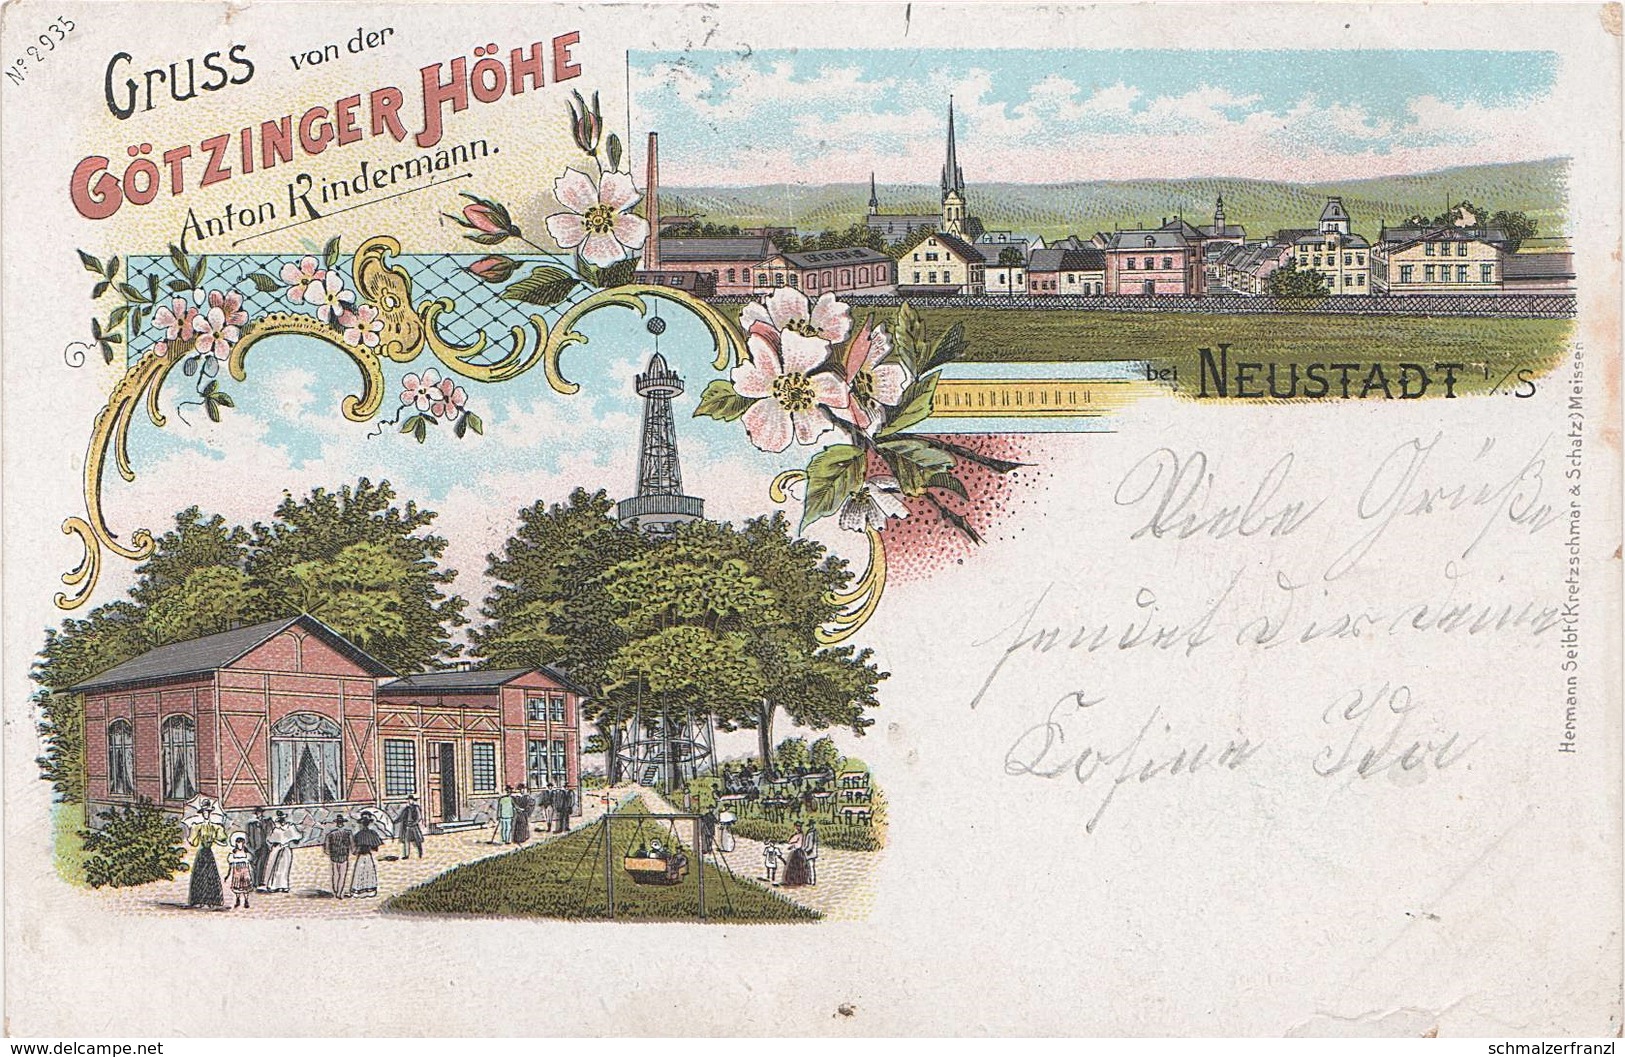 No. 2935
Gruss von der
GÖTZINGER HÖHE
Anton Rindermann.
bei NEUSTADT i./S
Viele Grüße
sendet Dir deine
Cosine Ida.
Hermann Seibt (Kretzschmar & Schatz) Meissen
www.delcampe.net
schmalzerfranzl